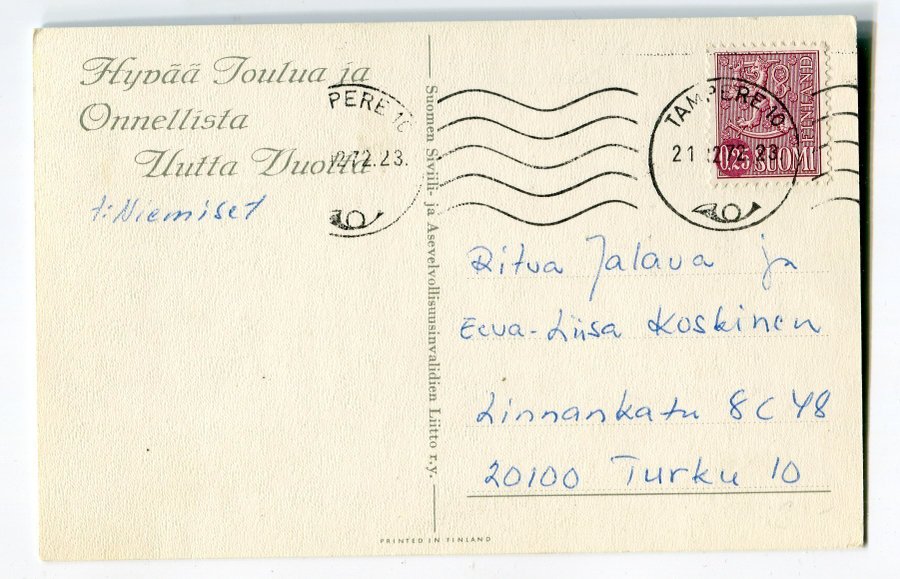 Hyvää Joulua ja
Onnellista
Uutta Vuotta
t: Niemiset
PERE 10
2.72.23.
Suomen Siviili- ja Asevelvollisuusinvalidien Liitto r.y.
TAMPERE 10
21.12.72.23.
FINLAND
0,25 SUOMI
Ritva Jalava ja
Eeva-Liisa Koskinen
Linnankatu 8 C 48
20100 Turku 10
PRINTED IN FINLAND